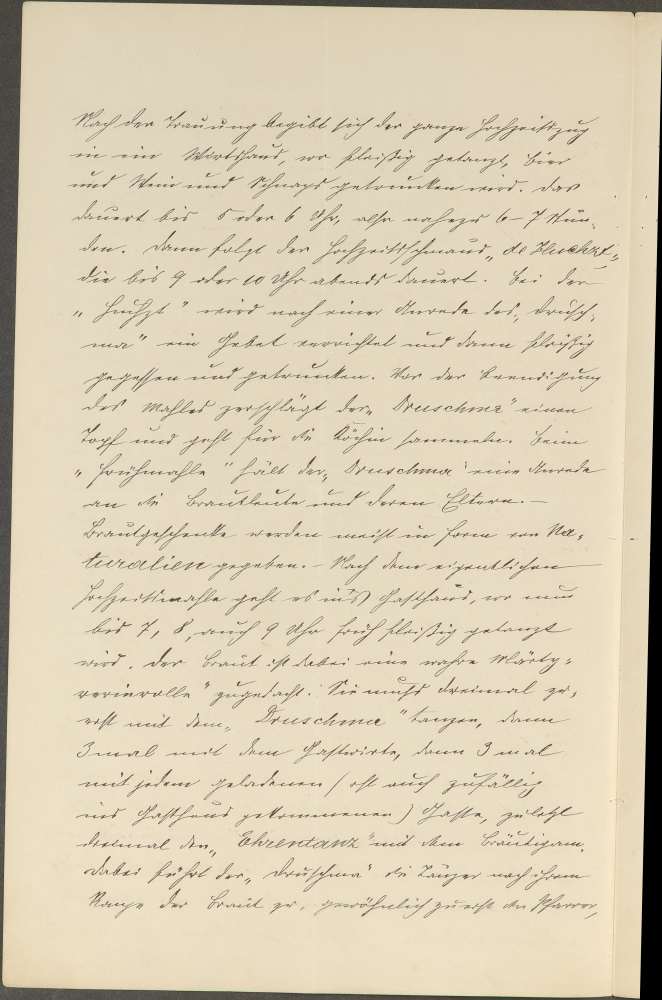 Nach der Trauung begibt sich der ganze Hochzeitszug
in ein Wirtshaus, wo fleißig getanzt, Bier
und Wein und Schnaps getrunken wird. Das
dauert bis 5 oder 6 Uhr, also nahezu 6–7 Stun-
den. Dann folgt der Hochzeitsschmaus „de Huchzt“
die bis 9 oder 10 Uhr abends dauert. Bei der
„Huchzt“ wird nach einer Anrede des „Drusch-
ma“ ein Gebet verrichtet und dann fleißig
gegessen und getrunken. Vor der Beendigung
des Mahles zerschlägt der „Druschma“ einen
Topf und geht für die Köchin sammeln. Beim
„Frühmahle“ hält der „Druschma“ eine Anrede
an die Brautleute und deren Eltern. –
Brautgeschenke werden meist in Form von Na-
turalien gegeben. – Nach dem eigentlichen
Hochzeitsmahle geht es in's Gasthaus, wo nun
bis 7, 8, auch 9 Uhr früh fleißig getanzt
wird. Der Braut ist dabei eine wahre Märty-
rerinrolle“ zugedacht. Sie muß dreimal zu-
erst mit dem „Druschma“ tanzen, dann
3mal mit dem Gastwirte, dann 3mal
mit jedem geladenen (oft auch zufällig
ins Gasthaus gekommenen) Gaste, zuletzt
dreimal den „Ehrentanz“ mit dem Bräutigam.
Dabei führt der „Druschma“ die Tänzer nach ihrem
Range der Braut zu, gewöhnlich zuerst den Pfarrer,